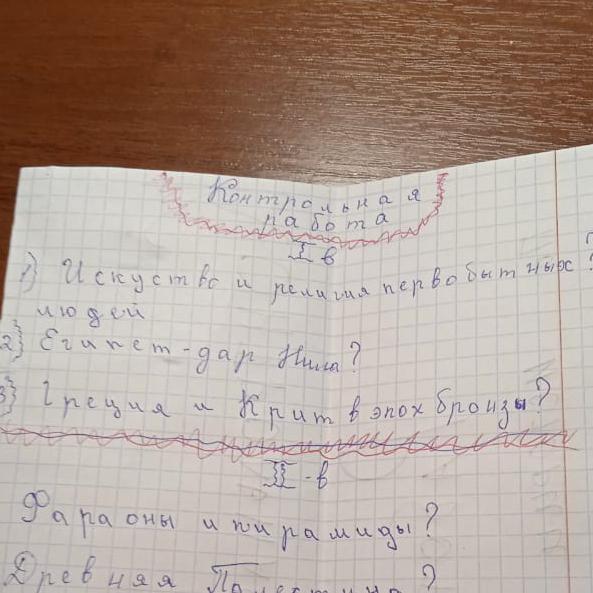 Контрольная
работа
I в
1) Искуство и религия первобытных ?
людей
2) Египет-дар Нила?
3) Греция и Крит в эпох бронзы?
II-в
Фараоны и пирамиды?
Древняя Палестина?